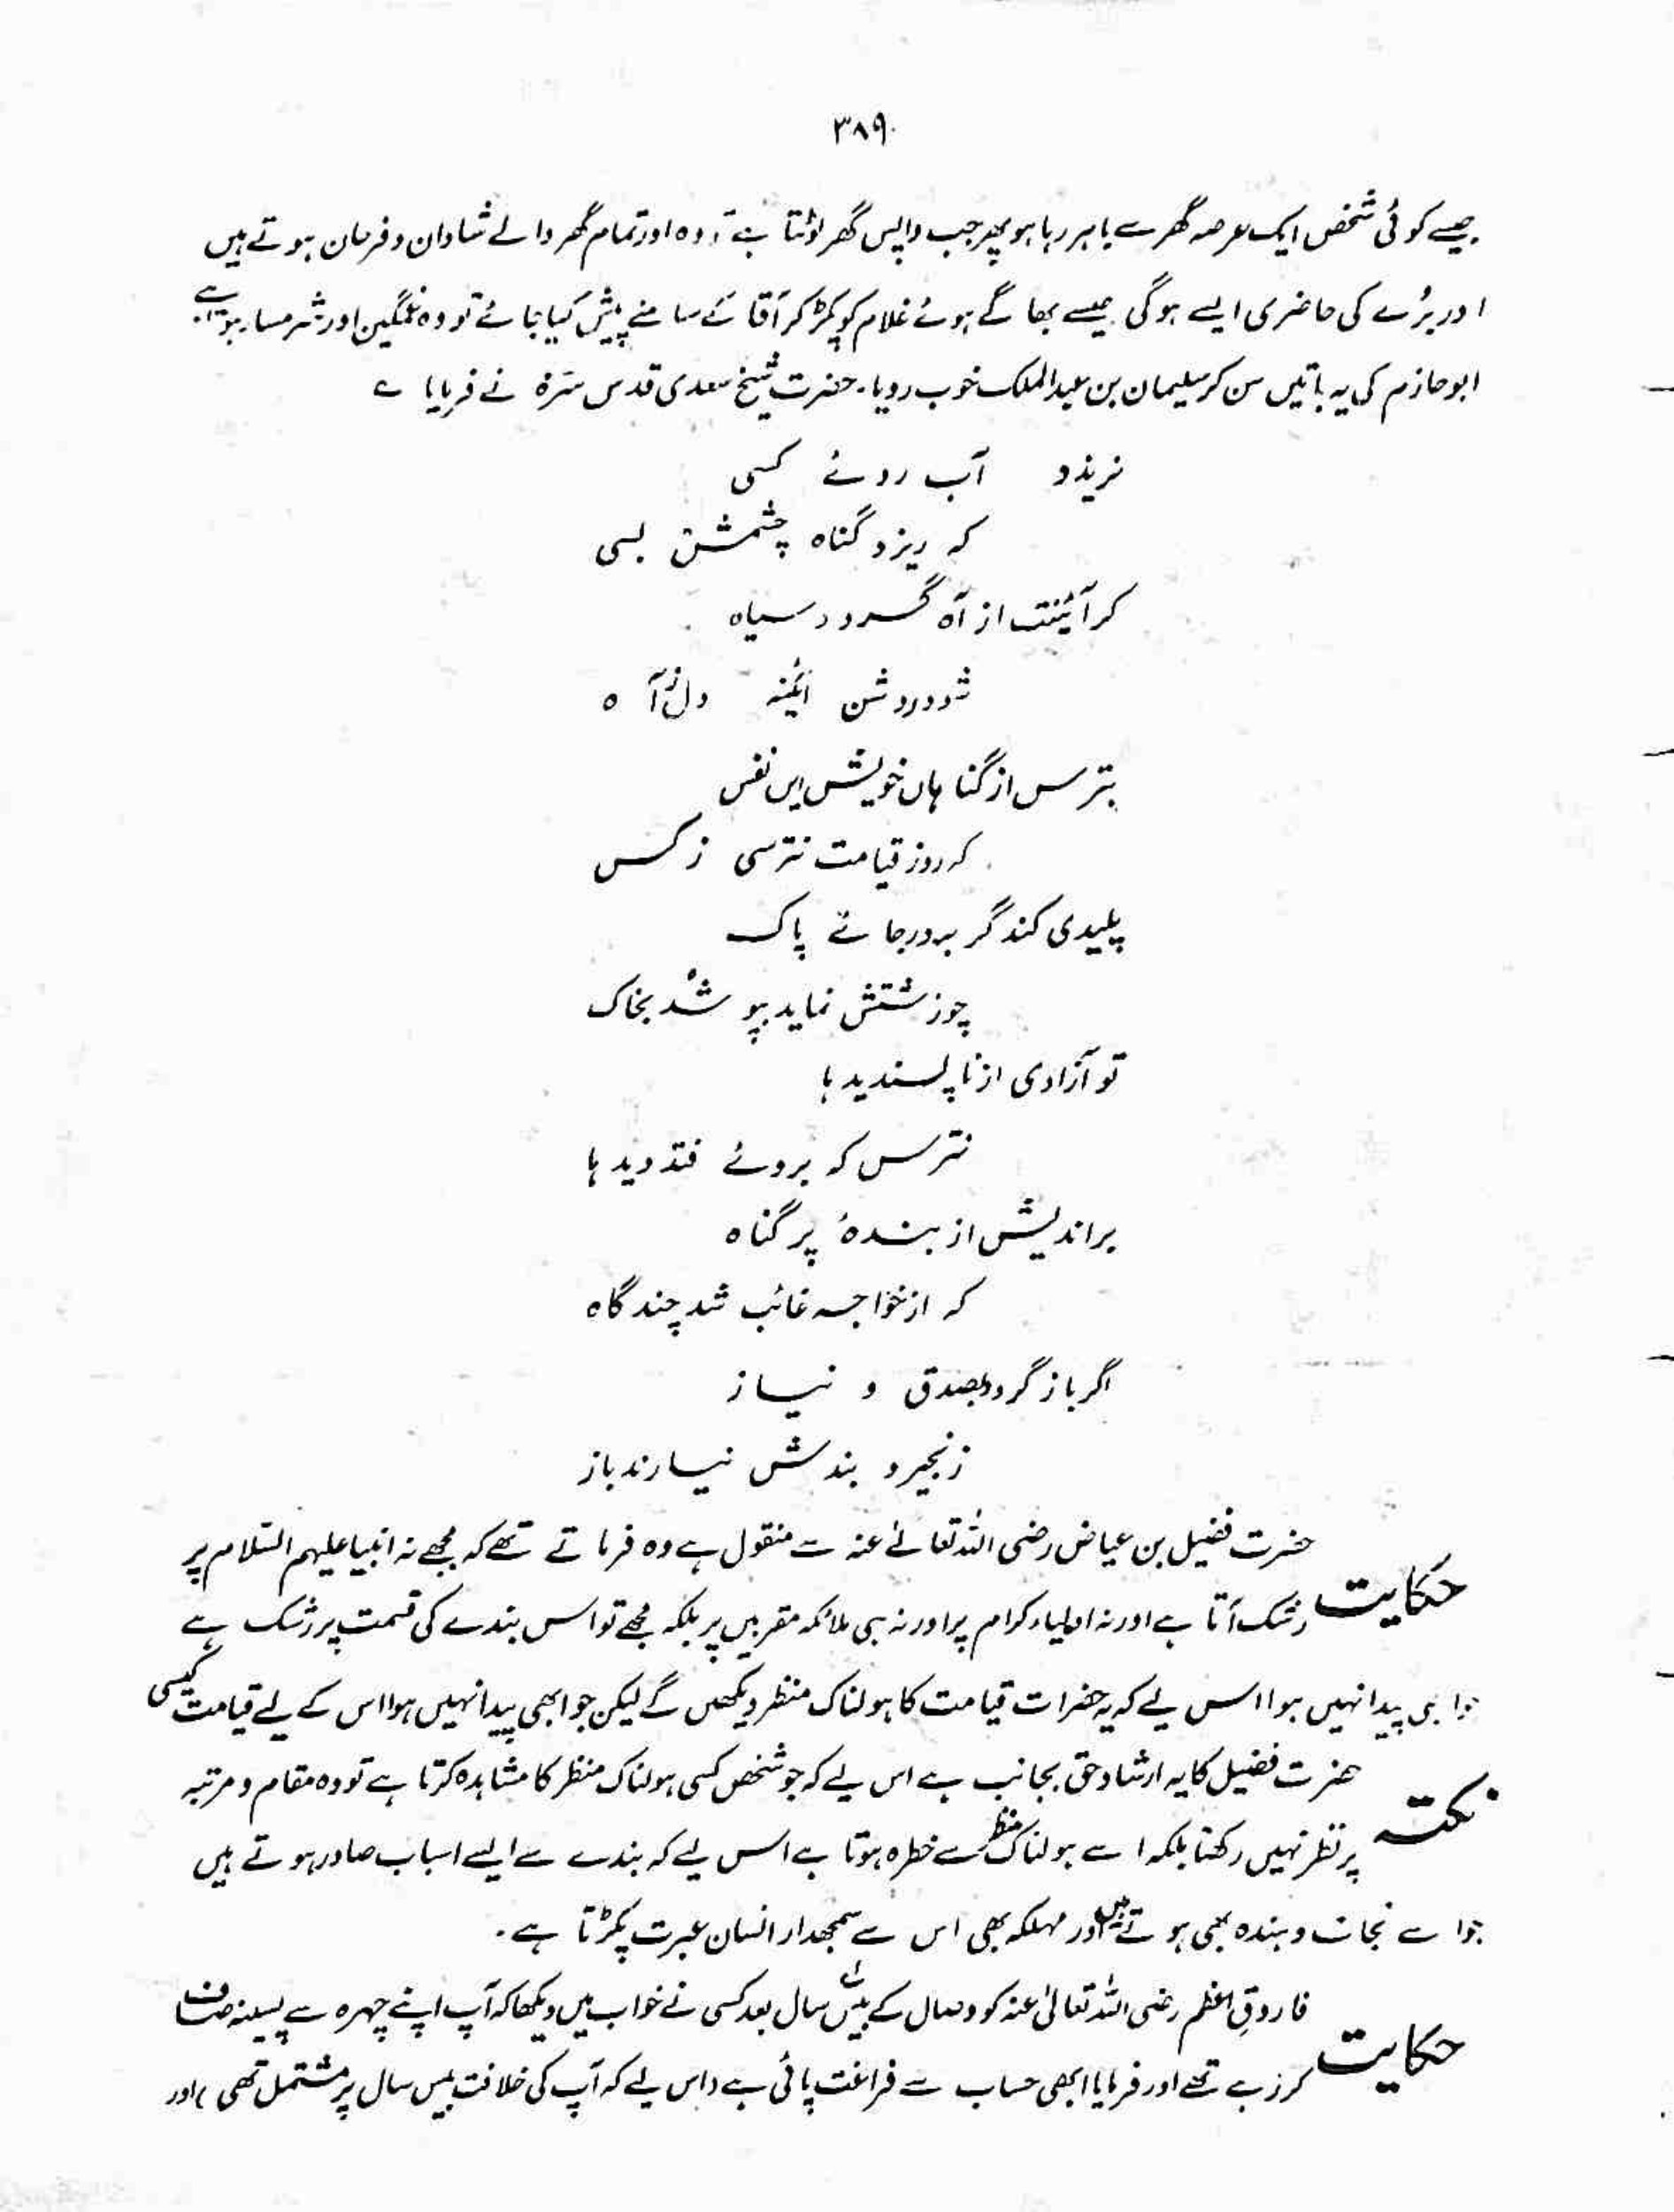 ۳۸۹
جیسے کوئی شخص ایک عرصہ گھر سے باہر رہا ہو پھر جب واپس گھر لوٹتا ہے تو وہ اور تمام گھر والے شاداں و فرحان ہوتے ہیں
اور بُرے کی حاضری ایسے ہوگی جیسے بھاگے ہوئے غلام کو پکڑ کر آقا کے سامنے پیش کیا جائے تو وہ غمگین اور شرمسار ہوتا ہے۔
ابوحازم کی یہ باتیں سن کر سلیمان بن عبدالملک خوب رویا۔ حضرت شیخ سعدی قدس سرّہ نے فرمایا ؎
نریزد آب روئے کسی
کہ ریزد گناہ چشمش بسی
کرآئینت از آہ گردد سیاہ
شود روشن آئینہ دل ز آہ
بترس از گناہان خویش ایں نفس
کہ روز قیامت نترسی ز کس
پلیدی کند گر بہ در جائے پاک
چو زشتش نماید بپوشد بخاک
تو آزادی از ناپسندیدہا
نترس کہ بروئے فتد دیدہا
براندیش از بندۂ پر گناہ
کہ از خواجہ غائب شد چند گاہ
اگر باز گردد بصدق و نیاز
زنجیر و بندش نیارند باز
حکایت حضرت فضیل بن عیاض رضی اللہ تعالےٰ عنہ سے منقول ہے وہ فرماتے تھے کہ مجھے نہ انبیا علیہم السّلام پر
رشک آتا ہے اور نہ اولیاء کرام پر اور نہ ہی ملائکہ مقربیں پر بلکہ مجھے تو اس بندے کی قسمت پر رشک ہے
جو ابھی پیدا نہیں ہوا اس لیے کہ یہ حضرات قیامت کا ہولناک منظر دیکھیں گے لیکن جو ابھی پیدا نہیں ہوا اس کے لیے قیامت کیسی
نکتہ حضرت فضیل کا یہ ارشاد حق بجانب ہے اس لیے کہ جو شخص کسی ہولناک منظر کا مشاہدہ کرتا ہے تو وہ مقام و مرتبہ
پر نظر نہیں رکھتا بلکہ اسے ہولناک منظر سے خطرہ ہوتا ہے اس لیے کہ بندے سے ایسے اسباب صادر ہوتے ہیں
جو اسے نجات دہندہ بھی ہوتے ہیں اور مہلکہ بھی اس سے سمجھدار انسان عبرت پکڑتا ہے۔
حکایت فاروقِ اعظم رضی اللہ تعالیٰ عنہ کو وصال کے بیس سال بعد کسی نے خواب میں دیکھا کہ آپ اپنے چہرہ سے پسینہ صاف
کر رہے تھے اور فرمایا ابھی حساب سے فراغت پائی ہے (اس لیے کہ آپ کی خلافت بیس سال پر مشتمل تھی) اور